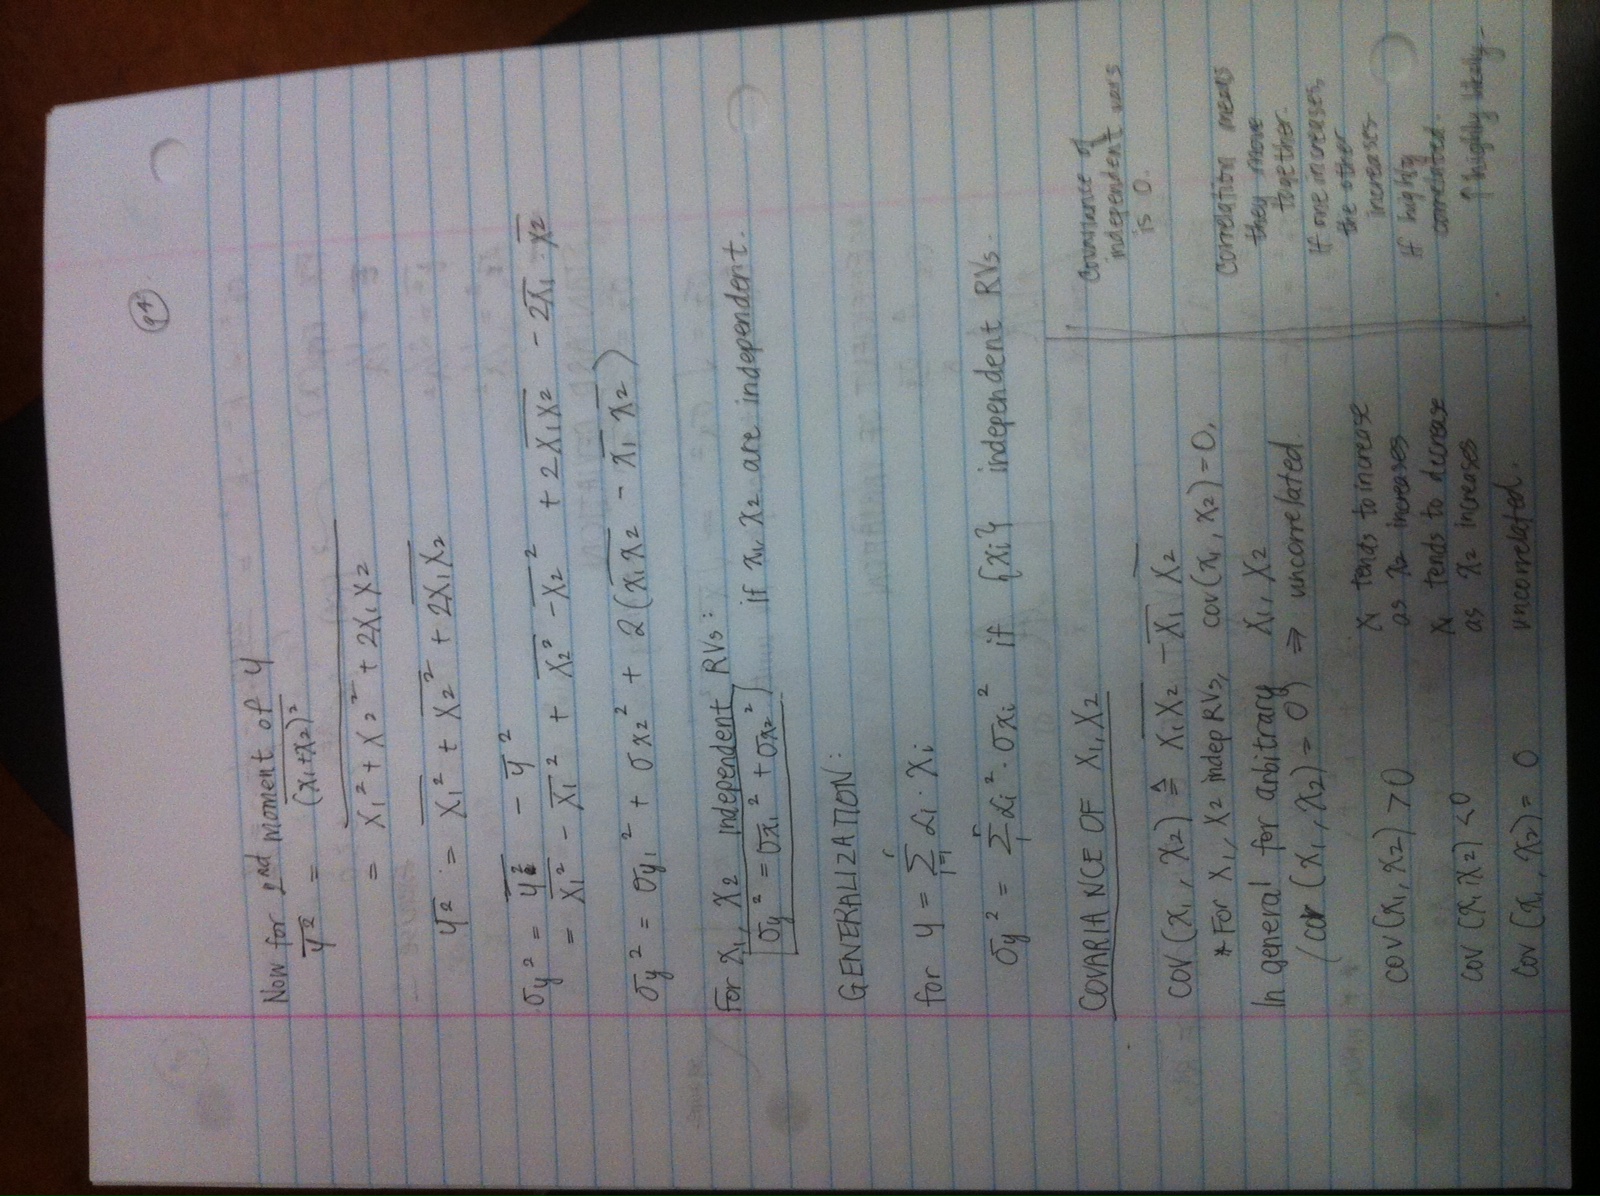 94
Now for 2nd moment of y
y̅²̅ = (x₁+x₂)² (overlined)
= x₁² + x₂² + 2x₁x₂ (overlined)
y̅²̅ = x̅₁²̅ + x̅₂²̅ + 2x̅₁x̅₂̅
σy² = y̅²̅ - y̅²
= x̅₁²̅ - x̅₁² + x̅₂²̅ - x̅₂² + 2x̅₁x̅₂̅ - 2x̅₁ · x̅₂
σy² = σy₁² + σx₂² + 2(x̅₁x̅₂̅ - x̅₁ x̅₂)
For x₁, x₂ independent RVs:
σy² = σx₁² + σx₂² if x₁, x₂ are independent.
GENERALIZATION:
for y = Σ_{i=1}^{r} αi · Xi
σy² = Σ_{1}^{r} αi² · σxi² if {xi} independent RVs.
COVARIANCE OF X₁, X₂
cov(x₁, x₂) ≜ x̅₁x̅₂̅ - x̅₁ x̅₂
* For X₁, X₂ indep RVs, cov(x₁, x₂) = 0,
In general for arbitrary X₁, X₂
(cor (x₁, x₂) = 0) ⇒ uncorrelated.
cov(x₁, x₂) > 0 x₁ tends to increase
as x₂ increases
cov (x₁, x₂) < 0 x₁ tends to decrease
as x₂ increases
cov (x₁, x₂) = 0 uncorrelated.
Covariance of
independent vars
is 0.
Correlation means
they move
together.
If one increases,
the other
increases
If highly
correlated.
↑ highly likely